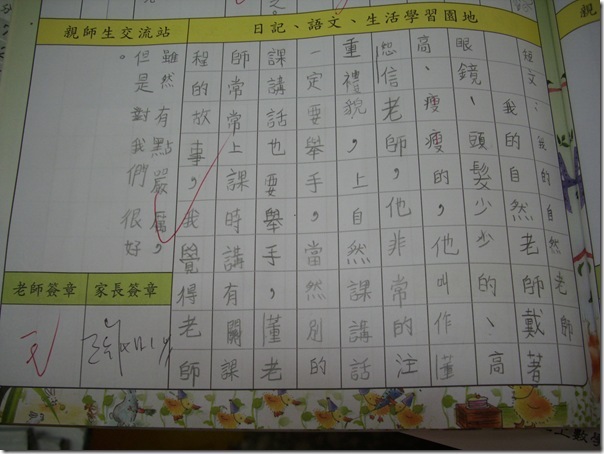 日記、語文、生活學習園地
親師生交流站
短文：我的自然老師
我的自然老師戴著
眼鏡、頭髮少少的、高
高、瘦瘦的，他叫作董
恕信老師，他非常的注
重禮貌，上自然課講話
一定要舉手，當然別的
課講話也要舉手，董老
師常常上課時講有關課
程的故事，我覺得老師
雖然有點嚴厲，
但是對我們很好。
家長簽章
老師簽章
親
數學